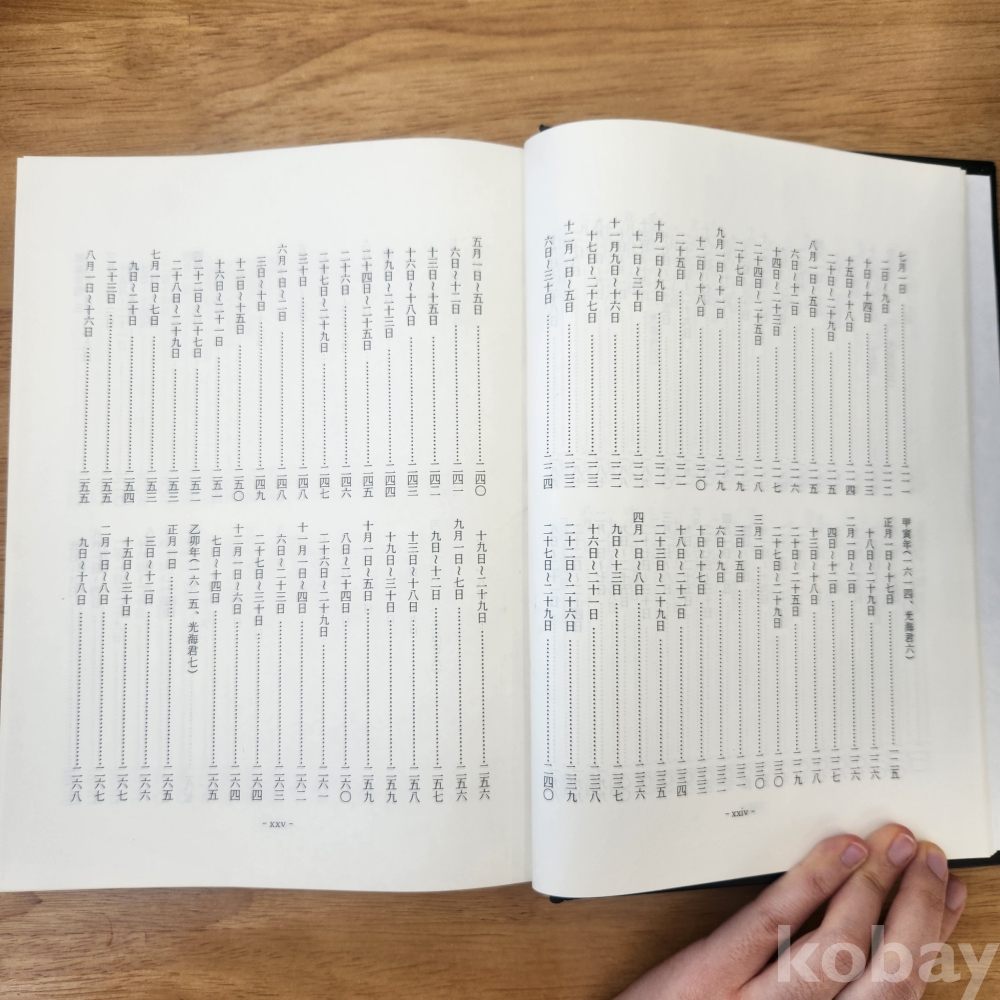 七月一日……二一一
二日~九日……二一二
十日~十四日……二一三
十五日~十八日……二一四
二十日~二十九日……二一五
八月一日~五日……二一五
六日~十二日……二一六
十四日~二十三日……二一七
二十四日~二十五日……二一八
二十七日……二一九
九月一日~十一日……二一九
十二日~十八日……二二〇
二十五日……二二一
十月一日~九日……二二一
十一日~三十日……二二二
十一月九日~十六日……二二二
十七日~二十七日……二二三
十二月一日~五日……二二三
六日~三十日……二二四
甲寅年(一六一四、光海君六)
正月一日~十七日……二二五
十八日~二十九日……二二六
二月一日~二日……二二六
四日~十二日……二二七
十三日~十八日……二二八
二十日~二十五日……二二九
二十七日~二十九日……二三〇
三月二日……二三〇
三日~五日……二三一
六日~九日……二三二
十日~十七日……二三三
十八日~二十二日……二三四
二十三日~二十九日……二三五
四月一日~八日……二三六
九日~十三日……二三七
十六日~二十一日……二三八
二十二日~二十六日……二三九
二十七日~二十九日……二四〇
- xxiv -
五月一日~五日……二四〇
六日~十二日……二四一
十三日~十五日……二四二
十六日~十八日……二四三
十九日~二十三日……二四四
二十四日~二十五日……二四五
二十六日……二四六
二十七日~二十九日……二四七
三十日……二四八
六月一日~二日……二四八
三日~十日……二四九
十二日~十五日……二五〇
十六日~二十一日……二五一
二十二日~二十七日……二五二
二十八日~二十九日……二五三
七月一日~七日……二五三
九日~二十日……二五四
二十三日……二五五
八月一日~十六日……二五五
十九日~二十九日……二五六
九月一日~七日……二五六
九日~十二日……二五七
十三日~十八日……二五八
十九日~三十日……二五九
十月一日~五日……二五九
八日~二十四日……二六〇
二十六日~二十九日……二六一
十一月一日~四日……二六二
六日~二十三日……二六三
二十七日~三十日……二六四
十二月一日~六日……二六四
七日~十四日……二六五
乙卯年(一六一五、光海君七)
正月一日……二六五
三日~十二日……二六六
十五日~三十日……二六七
二月一日~八日……二六七
九日~十八日……二六八
- xxv -
kobay